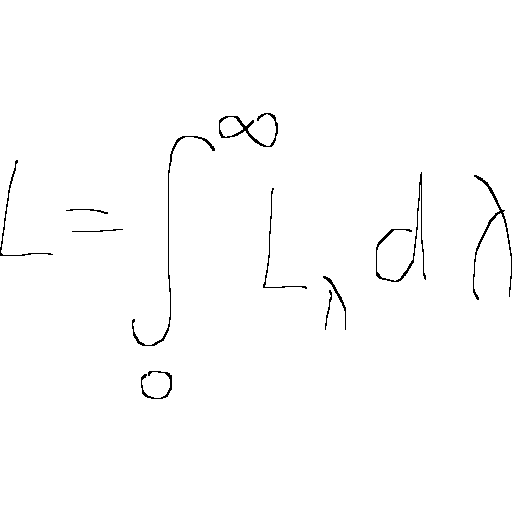 L = \int_{0}^{\infty} L_{\lambda} d\lambda